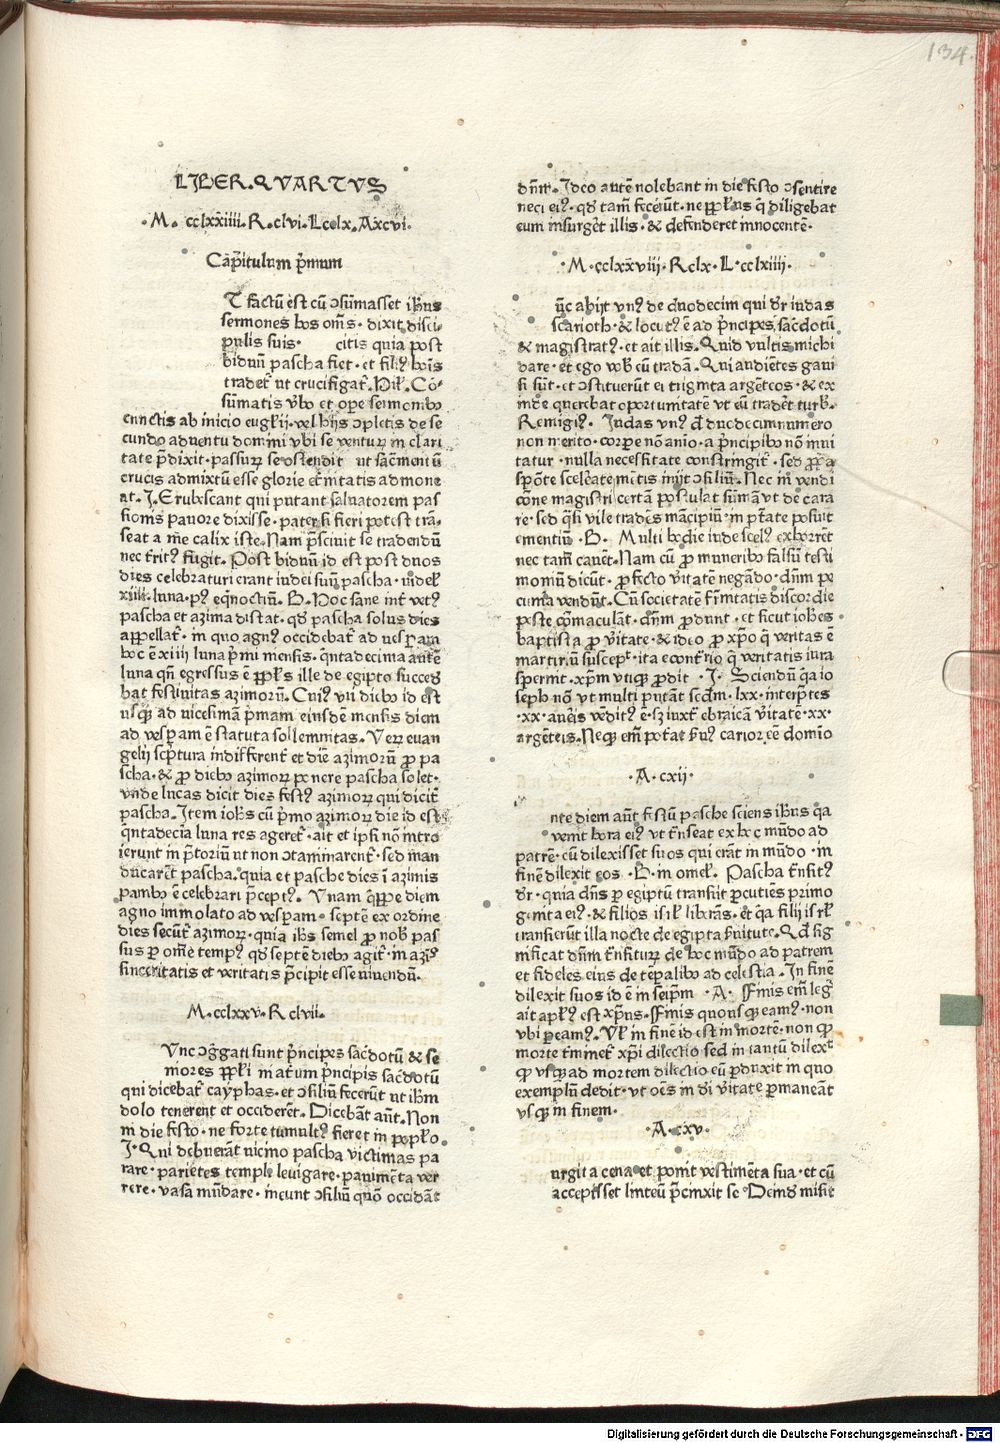 134.
LIBER. QVARTVS
·M· cclxxiiii· R· clvi· L cclx· A xcvi·
Cāp̄itulum p̄mum
T factū est cū ɔsūmasset ih̄us
sermones hos om̄s· dixit disci-
pulis suis· citis quia post
biduū pascha fiet· et filiꝰ hoīs
tradet̄ ut crucifigat̄· Hil̄· Cō-
sūmatis v̄bo et ope sermonibꝰ
cunctis ab inicio eugl̄ij· vel hijs ɔpletis de se
cundo aduentu domini vbi se venturꝝ in clari
tate p̄dixit· passurꝝ se ostendit ut sac̄mentū
crucis admixtū esse glorie et̄nitatis admone
at· J· Erubescant qui putant saluatorem pas
sionis pauore dixisse· pater si fieri potest trā-
seat a me calix iste· Nam p̄sciuit se tradendū
nec t̄ritꝰ fugit· Post biduū id est post duos
dies celebraturi erant iudei suū pascha· in del̄
xiiii· luna· pꝰ eq̄noctiū· B· Hoc sane int̄ vetꝰ
pascha et azima distat· qđ pascha solus dies
appellat̄· in quo agnꝰ occidebat̄ ad vesp̄am
hoc ē xiiii luna p̄mi mensis· qntadecima autē
luna qn̄ egressus ē pp̄ls ille de egipto succed
bat festiuitas azimorū· Cuiꝰ vii diebꝰ id est
usqꝫ ad uicesimā p̄mam eiusdē mensis diem
ad vesp̄am ē statuta sollemnitas· Verꝝ euan
gelij sc̄ptura indiffērent̄ et diē azimorū p̄ pa
scha· & p̄ diebꝰ azimorꝝ ponere pascha solet·
vnde lucas dicit dies festꝰ azimorꝝ qui dicit̄
pascha· Item ioh̄s cū p̄mo azimorꝝ die id est
qntadecīa luna res ageret̄· ait et ipsi nō intro
ierunt in p̄toriū ut non ɔtaminarent̄· sed man
ducarēt pascha· quia et pasche dies ī azimis
panibꝰ ē celebrari p̄ceptꝰ· Vnam q̄ppe diem
agno immolato ad vesp̄am· septē ex ordine
dies secūt̄ azimorꝝ· quia ih̄s semel p̄ nob̄ pas
sus p̄ om̄e tempꝰ qđ septē diebꝰ agit̄· in azīs
sinceritatis et veritatis p̄cipit esse viuendū·
M· cclxxv· R clvii·
Vnc ɔg̃gati sunt p̄ncipes sac̄dotū & se
niores pp̄li in atrium p̄ncipis sac̄dotū
qui dicebat̄ cayphas· et ɔsiliū fecerūt ut ih̄m
dolo tenerent et occiderēt· Dicebāt aūt· Non
in die festo· ne forte tumultꝰ fieret in poplo
J· Qui debuerāt uicino pascha victimas pa
rare· parietes templi leuigare· pauimēta ver
rere· vasa mūdare· ineunt ɔsiliū quō occidāt
dn̄m̄· Ideo autē nolebant in die festo ɔsentire
neci eiꝰ· qđ tam̄ fecerūt· ne pp̄lus q̄ diligebat
eum insurgēt illis· & defenderet innocentē·
·M· cclxxviii· R clx· L· cclxiiii·
ūc abijt vnꝰ de duodecim qui d̄r iudas
scarioth· & locutꝰ ē ad p̄ncipes sac̄dotū
& magistratꝰ· et ait illis· Quid vultis michi
dare· et ego vob̄ eū tradā· Qui audiētes gaui
si sūt· et ɔstituerūt ei triginta argēteos· & ex
inde querebat oportunitatē vt eū tradēt turb̄·
Remigiꝰ· Judas vnꝰ đ duodecim numero
non merito· corpe nō anīo· a p̄ncipibꝰ nō inui
tatur· nulla necessitate constringit̄· sed p̄p̄a
sp̄ōte scelēate mētis inijt ɔsiliū· Nec in vendi
cōne magistri certā postulat sūmā vt de cara
re· sed q̄si vile tradēs mācipiū· in p̄tāte posuit
ementiū· B· Multi hodie iude scelꝰ exhorrēt
nec tam̄ cauēt· Nam cū p̄ muneribꝰ falsū testi
moniū dicūt· p̄fecto v̄itatē negādo· dn̄m pe
cunia vendūt· Cū societatē f̄rnitatis discordie
peste cōmaculāt· dn̄m p̄dunt· et sicut ioh̄es
baptista p̄ v̄itate· & ideo p̄ xp̄o q̄ veritas ē
martiriū suscept̄· ita econt̄rio q̄ veritatis iura
sp̄ernit· xp̄m vtiqꝫ p̄dit· J· Sciendū q̄a io
seph nō vt multi putāt scd̄m· lxx· interp̄tes
·xx· aureis vēditꝰ ē· sꝫ iuxt̄ ebraicā v̄itatē· xx·
argēteis· Neqꝫ em̄ pot̄at s̄uꝰ carior eē domīo
·A· cxii·
nte diem aūt festū pasche sciens ih̄us q̄a
venit hora eiꝰ vt t̄nseat ex hoc mūdo ad
patrē· cū dilexisset suos qui erāt in mūdo· in
finē dilexit eos· B· in omel̄· Pascha t̄nsitꝰ
d̄r· quia dn̄s p̄ egiptū transsit percutiēs primo
genita eiꝰ· & filios isrl̄ liberās· et q̄a filij isrl̄
transierūt illa nocte de egipta s̄uitute· Qđ sig
nificat dn̄m t̄nsiturꝝ de hoc mūdo ad patrem
et fideles eius de tēp̄alibꝰ ad celestia· In fine
dilexit suos id ē in seip̄m· A· Finis em̄ legꝭ
ait apl̄s est xp̄us· Finis quousqꝫ eamꝰ· non
vbi peamꝰ· Vl̄ in finē id est in mortē· non qꝫ
morte t̄minet̄ xp̄i dilectio sed in tantū dilexᵗ
qꝫ vsqꝫ ad mortem dilectio eū p̄duxit in quo
exemplū dedit· vt oēs in di v̄itate p̄maneāt
vsqꝫ in finem·
·A· cxv·
urgit a cena et ponit vestimēta sua· et cū
accepisset linteū p̄cinxit se Deinđ misit
Digitalisierung gefördert durch die Deutsche Forschungsgemeinschaft - DFG